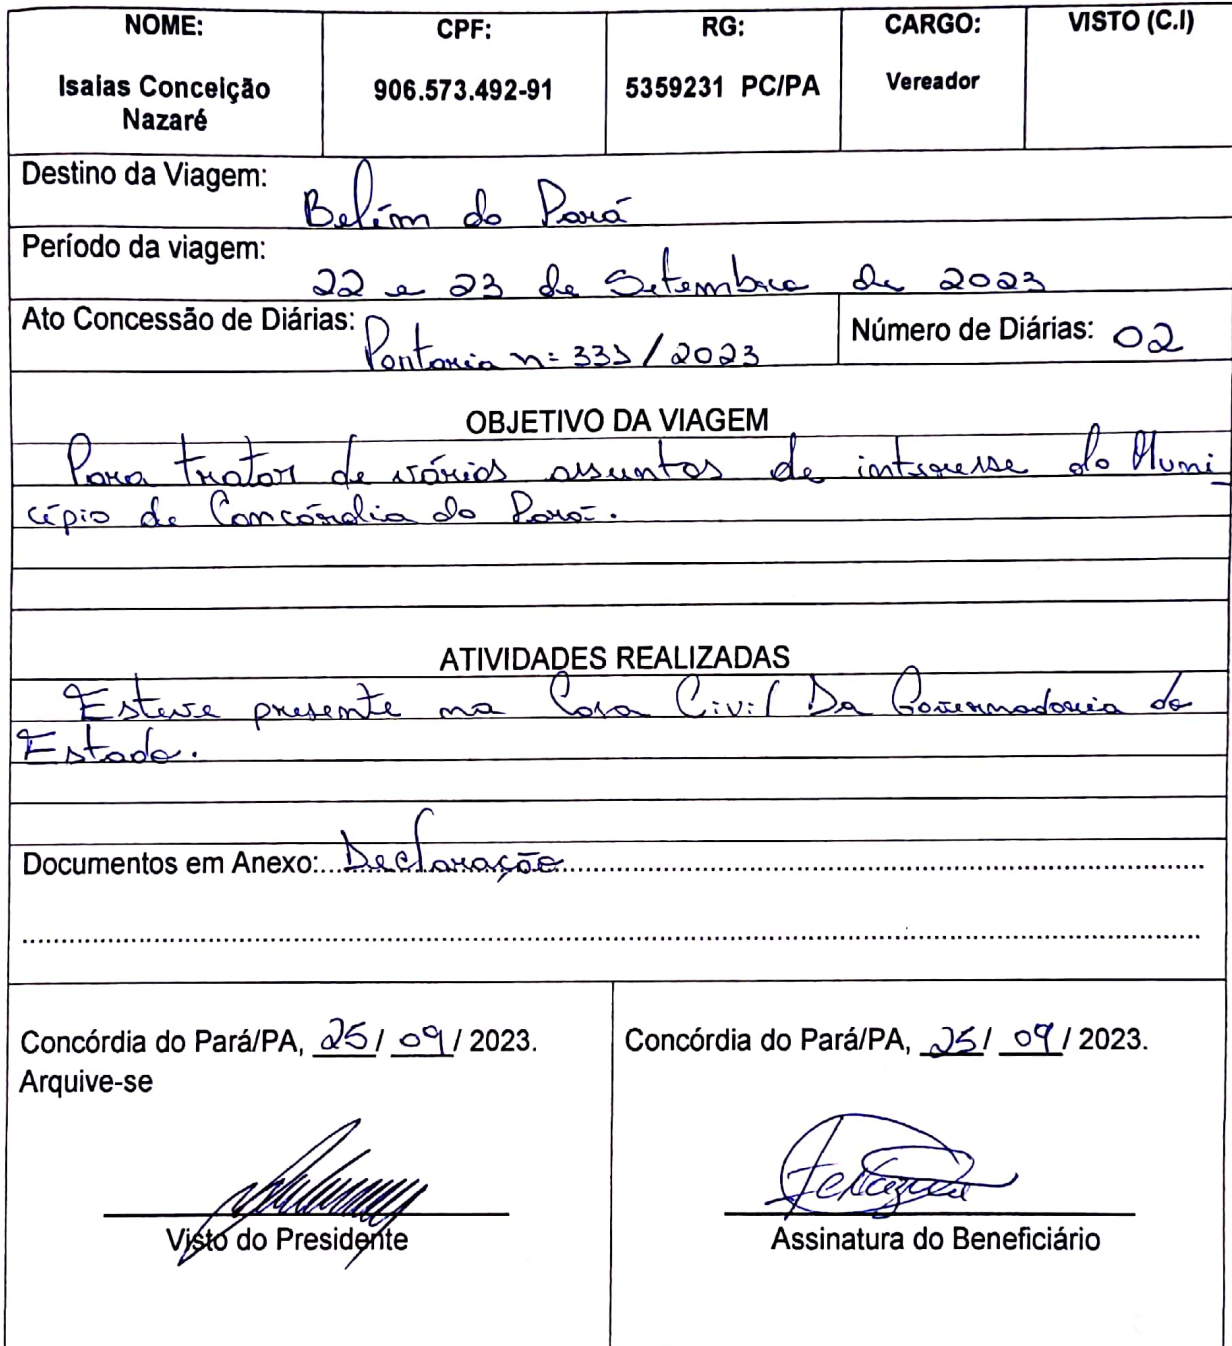 NOME: CPF: RG: CARGO: VISTO (C.I)
Isaias Conceição 906.573.492-91 5359231 PC/PA Vereador
Nazaré
Destino da Viagem: Belém do Pará
Período da viagem: 22 e 23 de Setembro de 2023
Ato Concessão de Diárias: Portaria nº /2023 Número de Diárias: 02
OBJETIVO DA VIAGEM
Para tratar de vários assuntos de interesse do Muni
cípio de Concórdia do Pará.
ATIVIDADES REALIZADAS
Esteve presente na Casa Civil Da Governadoria do
Estado.
Documentos em Anexo: Declaração
Concórdia do Pará/PA, 25/ 09/ 2023. Concórdia do Pará/PA, 25/ 09/ 2023.
Arquive-se
Visto do Presidente Assinatura do Beneficiário